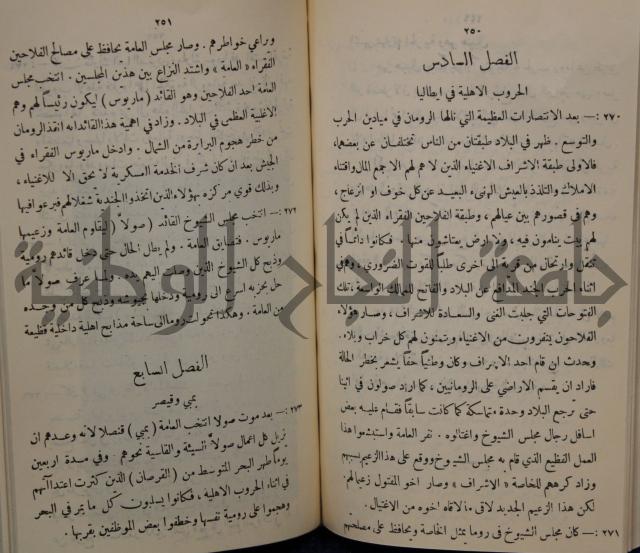 ٢٥٠
الفصل السادس
الحروب الاهلية في ايطاليا
٢٧٠ :— بعد الانتصارات العظيمة التي نالها الرومان في ميادين الحرب
والتوسع . ظهر في البلاد طبقتان من الناس تختلفان عن بعضها،
فالاولى طبقة الاشراف الاغنياء الذين لا هم لهم الا جمع المال واقتناء
الاملاك والتلذذ بالعيش الهنىء البعيد عن كل خوف او ازعاج ،
وهم في قصورهم بين عيالهم ، وطبقة الفلاحين الفقراء الذين لم يكن
لهم بيت ينامون فيه ، ولا ارض يعتاشون منها . فكانوا دائماً في
تنقل وارتحال من قرية الى اخرى طلباً للقوت الضروري ، وهم في
اثناء الحرب الجند المدافع عن البلاد والفاتح للممالك الواسعة ، تلك
الفتوحات التي جلبت الغنى والسعادة للاشراف ، وصار هؤلاء
الفلاحون ينفرون من الاغنياء ويتمنون لهم كل خراب وبلاء .
وحدث ان قام احد الاشراف وكان وطنياً حقاً يشعر بخطر الحالة
فاراد ان يقسم الاراضي على الرومانيين ، كما اراد صولون في اثينا
حتى ترجع البلاد وحدة متماسكة كما كانت سابقاً فقام عليه بعض
اسافل رجال مجلس الشيوخ واغتالوه . نفر العامة واستبشعوا هذا
العمل الفظيع الذي قام به مجلس الشيوخ ووقع على هذا الزعيم لسببهم
وزاد كرههم للخاصة « الاشراف » وصار اخو المقتول زعيما لهم.
لكن هذا الزعيم الجديد لاقى ما لاقاه اخوه من الاغتيال .
٢٧١ :— كان مجلس الشيوخ في روما يمثل الخاصة ويحافظ على مصلحتهم
٢٥١
ويراعي خواطرهم . وصار مجلس العامة يحافظ على مصالح الفلاحين
الفقراء « العامة » واشتد النزاع بين هذين المجلسين . انتخب مجلس
العامة احد الفلاحين وهو القائد ( ماريوس ) ليكون رئيساً لهم وهم
الاغلبية العظمى في البلاد . وزاد في اهمية هذا القائد انه انقذ الرومان
من خطر هجوم البرابرة من الشمال . وادخل ماريوس الفقراء في
الجيش بعد ان كان شرف الخدمة العسكرية لا يحق الا للاغنياء ،
وبذلك قوي مركزه بهؤلاء الذين اتخذوا الجندية شغلا لهم فبرعوا فيها
٢٧٢ :— انتخب مجلس الشيوخ القائد ( صولا ) ليقاوم العامة وزعيمها
ماريوس . فتضايق العامة . ولم يطل الحال حتى دخل قائدهم رومية
وذبح كل الشيوخ الذين وصلت اليهم يده . ولما عرف صولا ما
حل بحزبه اسرع الى رومية ودخلها بجيوشه وذبح كل من وجده
من العامة . وهكذا تحولت روما الى ساحة مذابح اهلية داخلية فظيعة
الفصل السابع
بمبي وقيصر
٢٧٣ :— بعد موت صولا انتخب العامة ( بمبي ) قنصلا لانه وعدهم ان
يزيل كل اعمال صولا السيئة والقاسية نحوهم . وفي مدة اربعين
يوماً طهر البحر المتوسط من ( القرصان ) الذين كثرت اعتداآتهم
في اثناء الحروب الاهلية ، فكانوا يسلبون كل ما يمر في البحر
وهجموا على رومية نفسها وخطفوا بعض الموظفين بقربها .
جامعة النجاح الوطنية